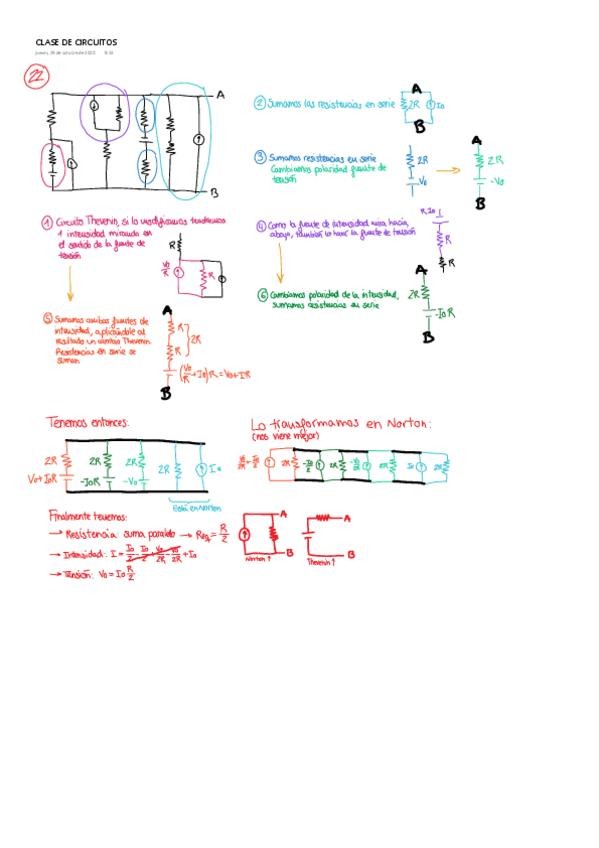 CLASE DE CIRCUITOS
22
A
B
① Circuito Thevenin, si lo modificamos tendremos
1 intensidad mirando en
el sentido de la fuente de
tensión
R
Vo/R
R
② Sumamos las resistencias en serie
A
2R
Io
B
③ Sumamos resistencias en serie
Cambiamos polaridad fuente de
tensión
2R
Vo
A
2R
-Vo
B
④ Como la fuente de intensidad mira hacia
abajo, también lo hará la fuente de tensión
R Io
R
R
⑤ Sumamos ambas fuentes de
intensidad, aplicándole al
resultado un cambio Thevenin.
Resistencias en serie se
suman
A
R
R
2R
(Vo/R + Io)R = Vo + IR
B
⑥ Cambiamos polaridad de la intensidad,
sumamos resistencias en serie
A
2R
-IoR
B
Tenemos entonces:
2R
Vo+IoR
2R
-IoR
2R
-Vo
2R
Io
Está en Norton
Lo transformamos en Norton:
(nos viene mejor)
2R
2R
2R
Io
2R
Finalmente tenemos:
→ Resistencia suma paralelo → Req = R/2
→ Intensidad: I = Io/2 - Io/2 + Vo/2R - Vo/2R + Io
→ Tensión: Vo = Io R/2
A
B
Norton ↑
A
B
Thevenin ↑